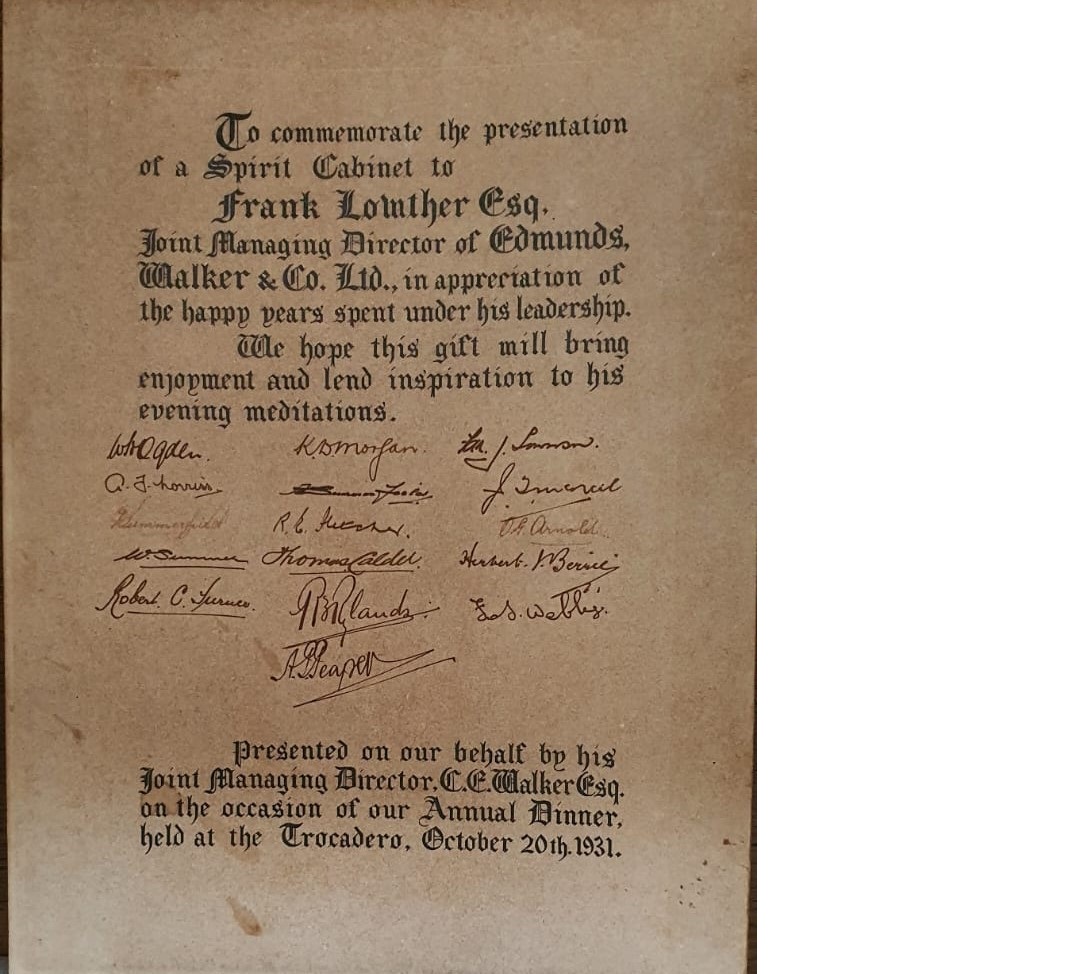 To commemorate the presentation
of a Spirit Cabinet to
Frank Lowther Esq.
Joint Managing Director of Edmunds,
Walker & Co. Ltd., in appreciation of
the happy years spent under his leadership.
We hope this gift will bring
enjoyment and lend inspiration to his
evening meditations.
Ogden. K.D. Morgan. J.
A. J.
Summerfield R.E. Fletcher. Arnold.
W. Sumner Thomas Calder. Herbert.
Robert. C. Turner. Rylands.
Presented on our behalf by his
Joint Managing Director. C.E. Walker Esq.
on the occasion of our Annual Dinner,
held at the Trocadero, October 20th. 1931.